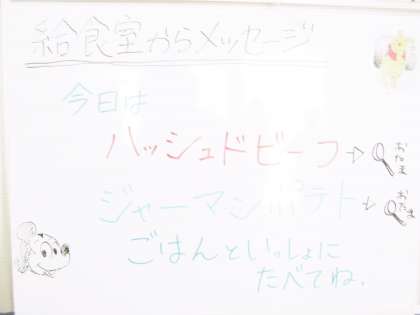 給食室からメッセージ
今日は
ハッシュドビーフ→ おたま
ジャーマンポテト→ おたま
ごはんといっしょに
たべてね。